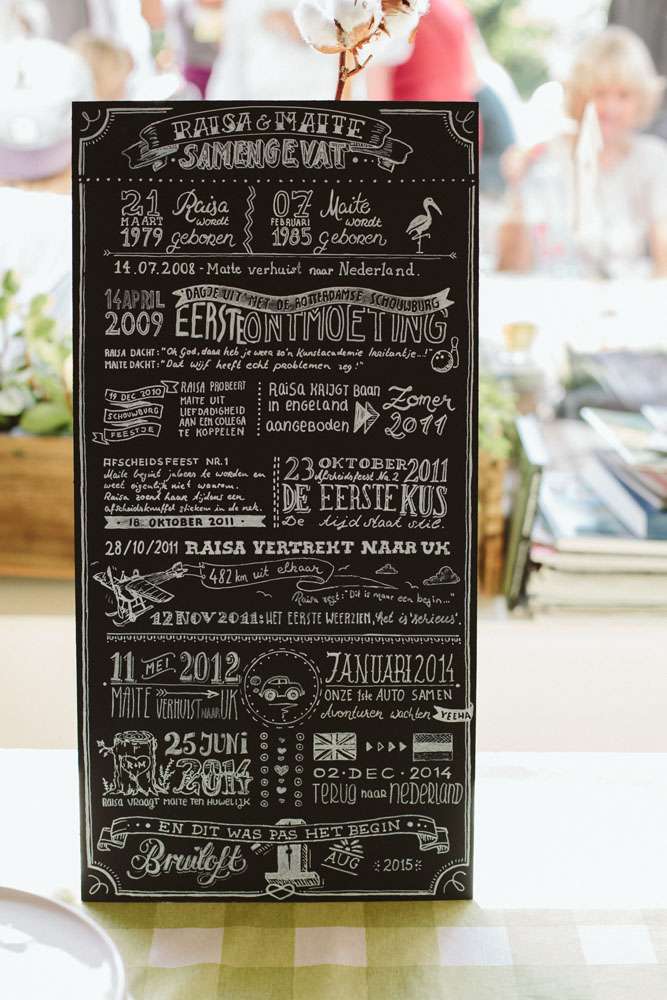 RAISA & MAITE
SAMENGEVAT
21 MAART 1979
Raisa wordt geboren
07 FEBRUARI 1985
Maite wordt geboren
14.07.2008 - Maite verhuist naar Nederland.
14 APRIL 2009
'DAGJE UIT' MET DE ROTTERDAMSE SCHOUWBURG
EERSTE ONTMOETING
RAISA DACHT: "Oh God, daar heb je weer zo'n Kunstacademie
MAITE DACHT: "Dat wijf heeft echt problemen zeg!"
19 DEC 2010
SCHOUWBURG
FEESTJE
RAISA PROBEERT
MAITE UIT
LIEFDADIGHEID
AAN EEN COLLEGA
TE KOPPELEN
RAISA KRIJGT BAAN
in engeland
aangeboden
Zomer
2011
AFSCHEIDSFEEST NR.1
Maite begint jaloers te worden en
weet eigenlijk niet waarom.
Raisa zoent haar tijdens een
afscheidsknuffel stiekem in de nek.
16. OKTOBER 2011
23 OKTOBER 2011
Afscheidsfeest No. 2
DE EERSTE KUS
De tijd staat stil.
28/10/2011 RAISA VERTREKT NAAR UK
482 km uit elkaar
Raisa zegt: "Dit is maar een begin..."
12 NOV 2011: HET EERSTE WEERZIEN, het is 'serieus'.
11 MEI 2012
MAITE VERHUIST NAAR UK
JANUARI 2014
ONZE 1ste AUTO SAMEN
Avonturen wachten
YEEHA
R+M
25 JUNI
2014
RAISA VRAAGT MAITE TEN HUWELIJK
02·DEC·2014
TERUG naar NEDERLAND
EN DIT WAS PAS HET BEGIN
Bruiloft
1
AUG
2015